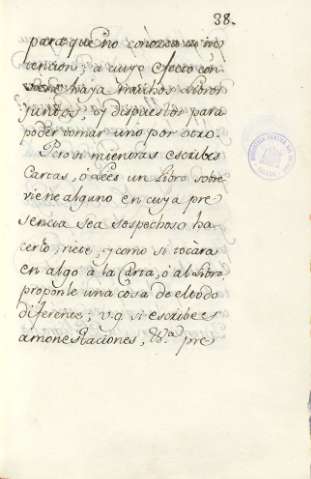 38.
para que no conozca tu in
tencion; a cuyo efecto con
viene haya muchos libros
juntos, y dispuestos para
poder tomar uno por otro.
Pero si mientras escribes
Cartas, ò Lees un Libro sobre
viene alguno en cuya pre
sencia sea sospechoso ha
cerlo,
y como si tocàra
en algo à la Carta, ò al Libro
proponle una cosa de el todo
diferente; v.g. si escribes
amonestaciones, &c.a pre